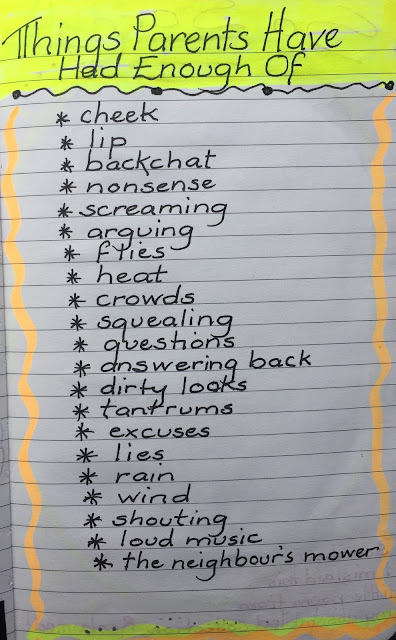 Things Parents Have
Had Enough Of
* cheek
* lip
* backchat
* nonsense
* screaming
* arguing
* flies
* heat
* crowds
* squealing
* questions
* answering back
* dirty looks
* tantrums
* excuses
* lies
* rain
* wind
* shouting
* loud music
* the neighbour's mower